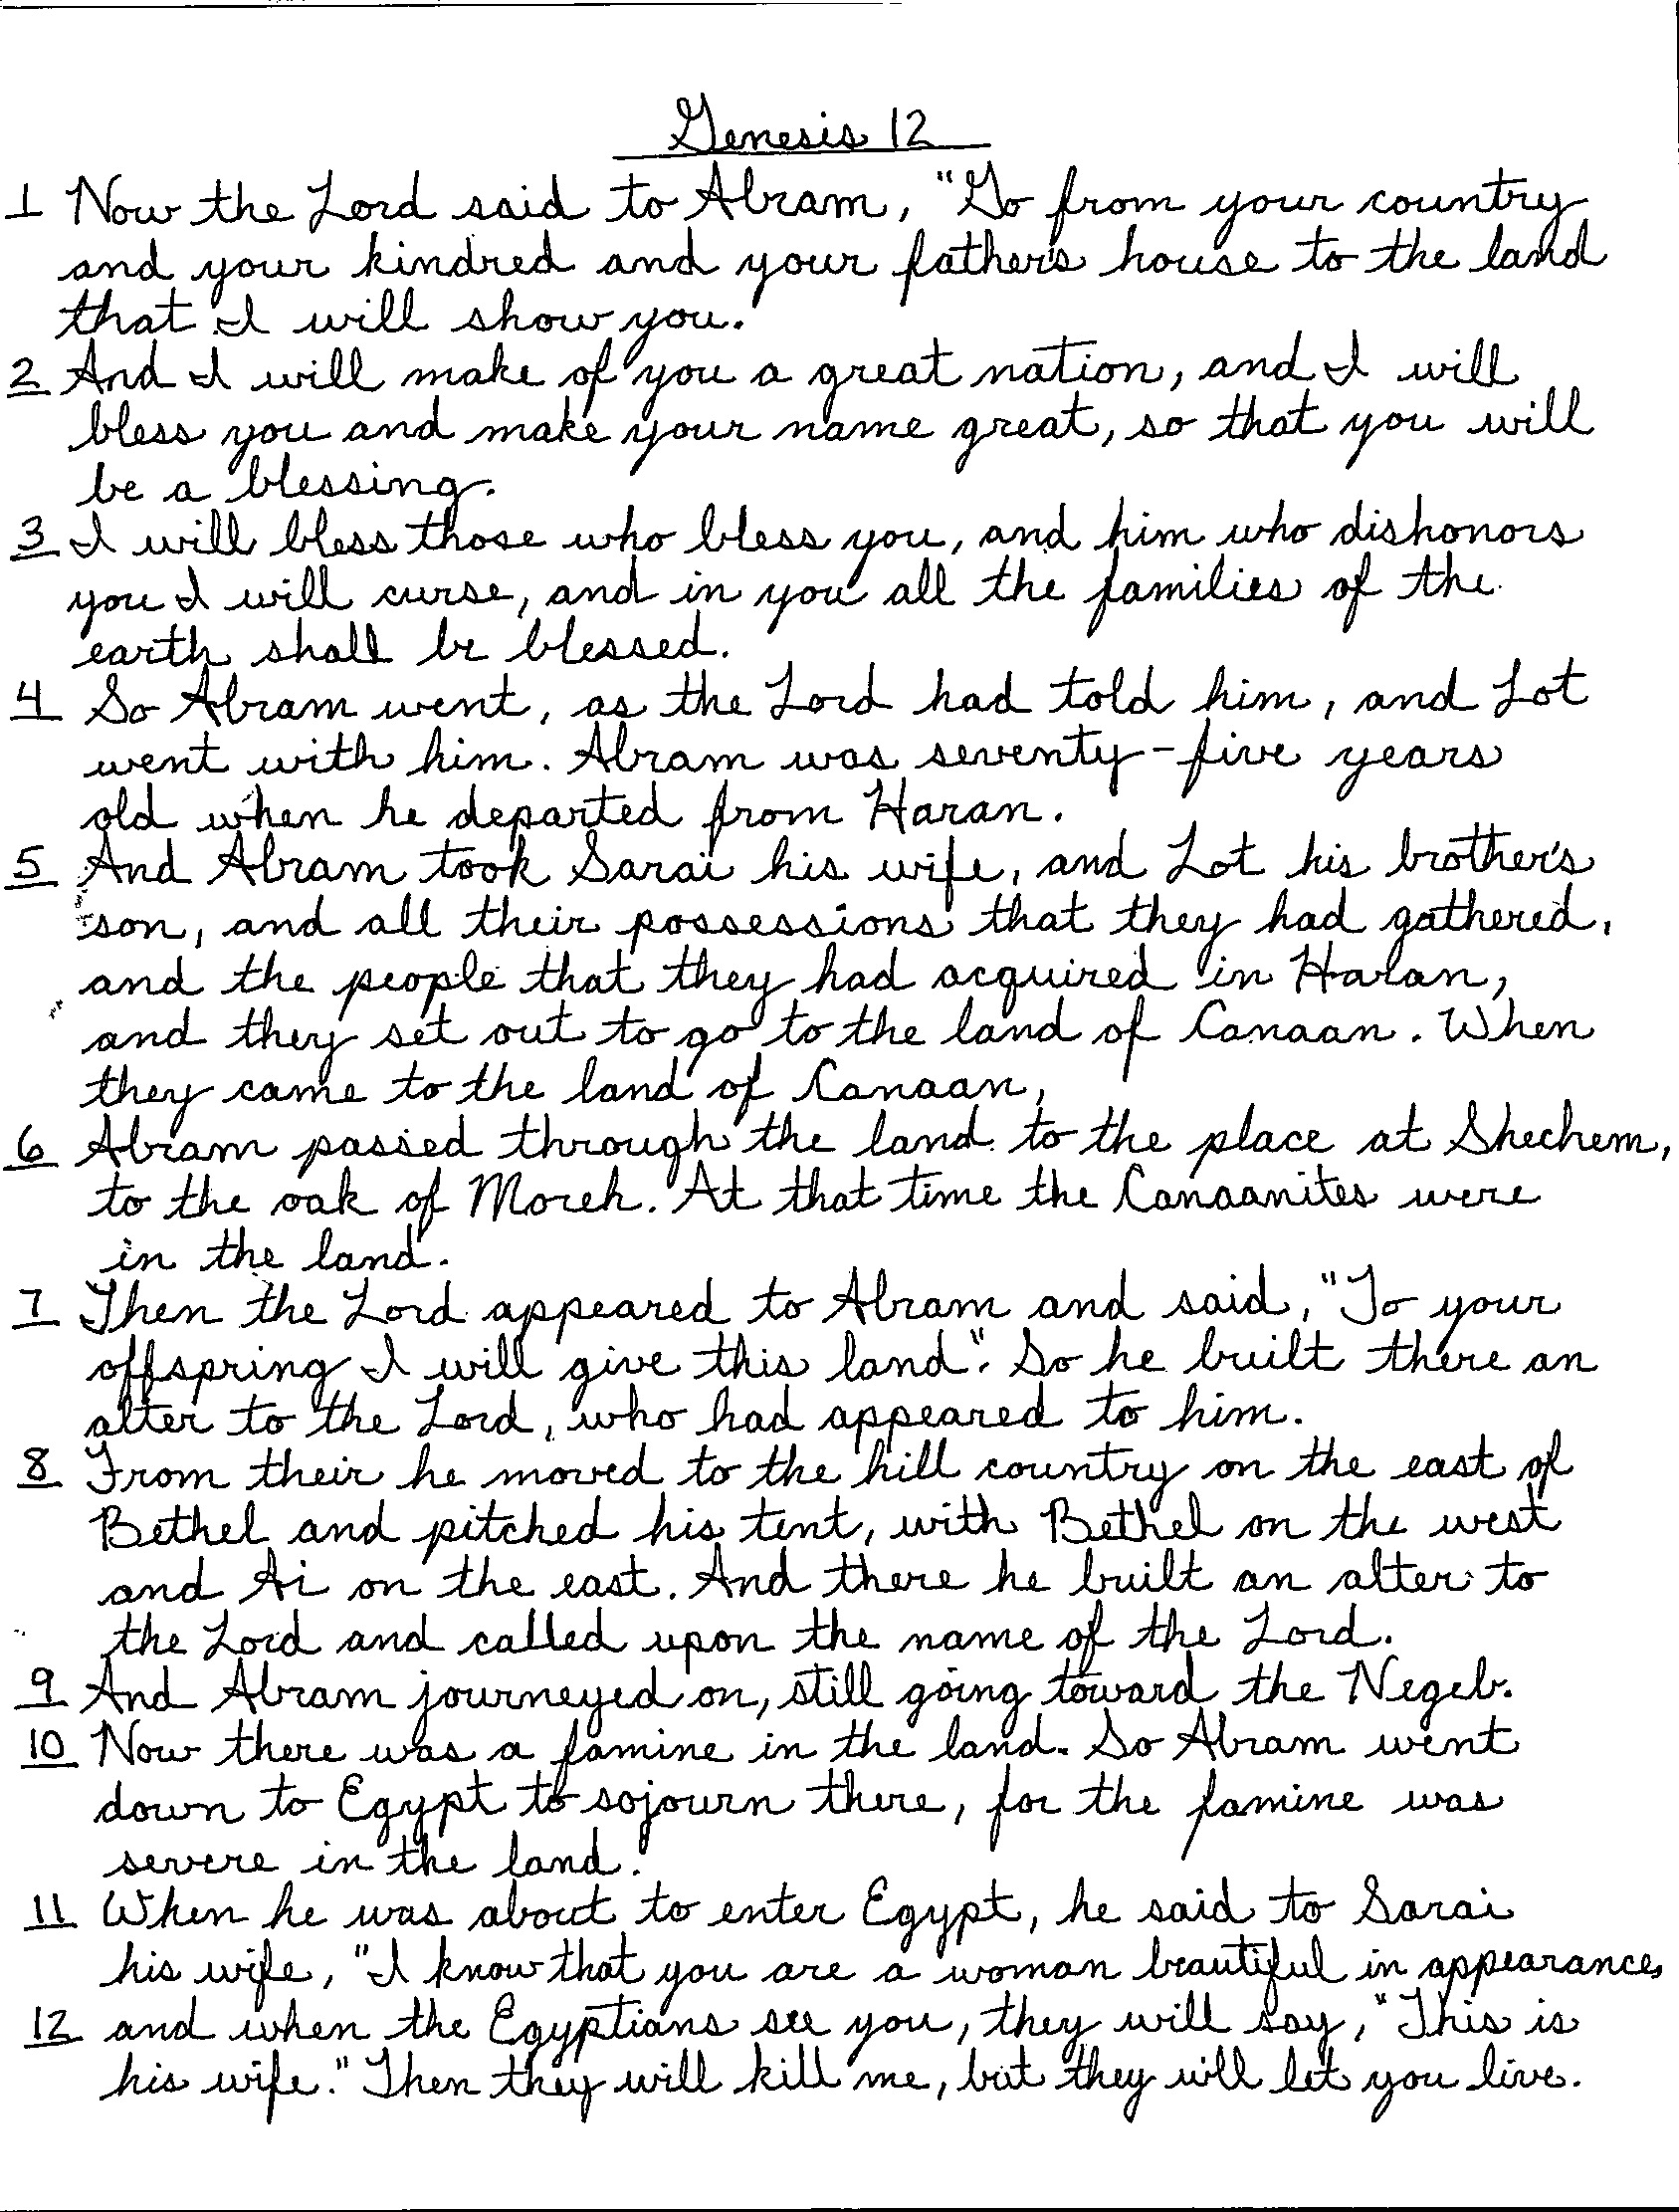 Genesis 12
1 Now the Lord said to Abram, "Go from your country
and your kindred and your father's house to the land
that I will show you.
2 And I will make of you a great nation, and I will
bless you and make your name great, so that you will
be a blessing.
3 I will bless those who bless you, and him who dishonors
you I will curse, and in you all the families of the
earth shall be blessed.
4 So Abram went, as the Lord had told him, and Lot
went with him. Abram was seventy-five years
old when he departed from Haran.
5 And Abram took Sarai his wife, and Lot his brother's
son, and all their possessions that they had gathered,
and the people that they had acquired in Haran,
and they set out to go to the land of Canaan. When
they came to the land of Canaan,
6 Abram passed through the land to the place at Shechem,
to the oak of Moreh. At that time the Canaanites were
in the land.
7 Then the Lord appeared to Abram and said, "To your
offspring I will give this land". So he built there an
alter to the Lord, who had appeared to him.
8 From their he moved to the hill country on the east of
Bethel and pitched his tent, with Bethel on the west
and Ai on the east. And there he built an alter to
the Lord and called upon the name of the Lord.
9 And Abram journeyed on, still going toward the Negeb.
10 Now there was a famine in the land. So Abram went
down to Egypt to sojourn there, for the famine was
severe in the land.
11 When he was about to enter Egypt, he said to Sarai
his wife, "I know that you are a woman beautiful in appearance,
12 and when the Egyptians see you, they will say, "This is
his wife." Then they will kill me, but they will let you live.